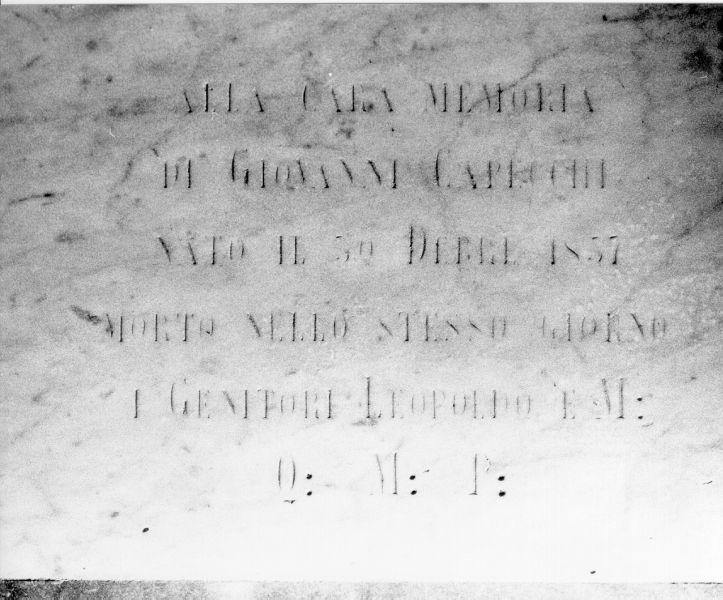 ALLA CARA MEMORIA
DI GIOVANNI CAPECCHI
NATO IL 30 DEBRE 1857
MORTO NELLO STESSO GIORNO
I GENITORI LEOPOLDO E M:
Q: M: P: